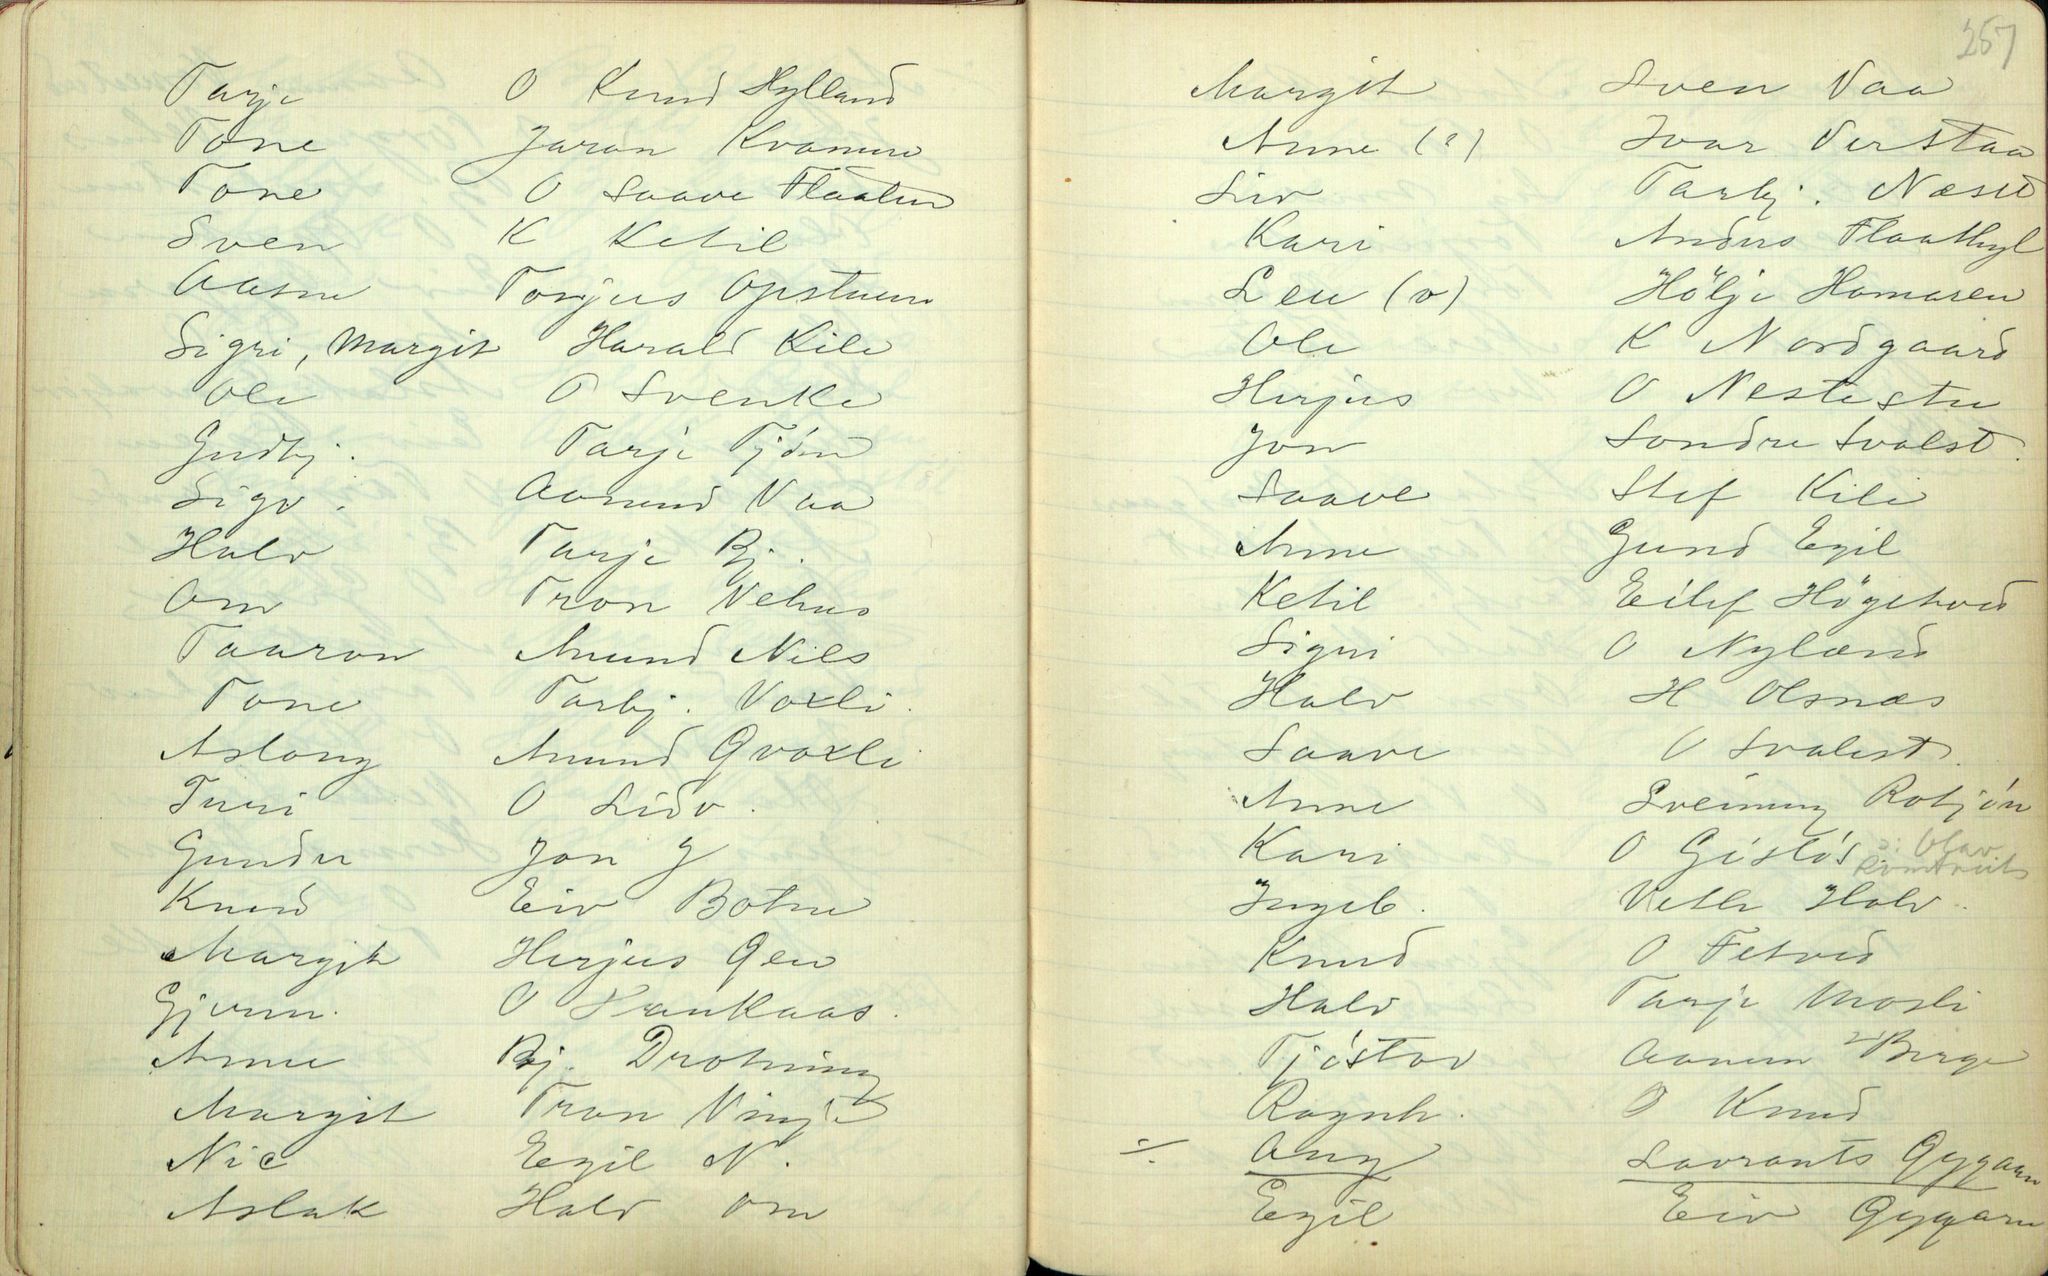 Tarje O Knud Hylland
Tone Jaran Kvamme
Tone O Saave Flaatun
Sven K Ketil
Aasne Torjus Opstuen
Sigri, Margit Harald Kile
Ole O Svenke
Gudbj. Tarje Tjønn
Sigv. Aamund Vaa
Halv Tarje Bj.
Om Tron Nehus
Taaron Amund Nils
Tone Tarbj. Vaxli.
Aslaug Amund Qvaxli
Turi O Lidv.
Gunder Jon J
Knud Eiv Botne
Margit Herjus Qen
Gjerm. O Frankaas.
Anne Bj. Drotning
Margit Tron Vinje
Nic Egil N.
Aslak Halv Om
257
Margit Sven Vaa
Anne (?) Ivar Verstaa
Liv Tarbj. Næset
Kari Anders Flaathyl
Leu (o) Hölje Homaren
Ole K Nordgaard
Herjus O Nestestu
Jon Sondre Svalest.
Saave Stef Kile
Anne Gund Egil
Ketil Eilef Högetved
Sigri O Nyland
Halv H Olsnæs
Saave O Svalest.
Anne Sveinung Rotjón
Kari O Gisløs ɔ: Olav
Ingeb. Vetle Halv.
Knud O Fetved
Halv Tarje Mosli
Tjóstov Aanum Berge
Ragnh. O Knud
÷ Ang Lavrants Qygaarn
Egil Eiv Qygarn